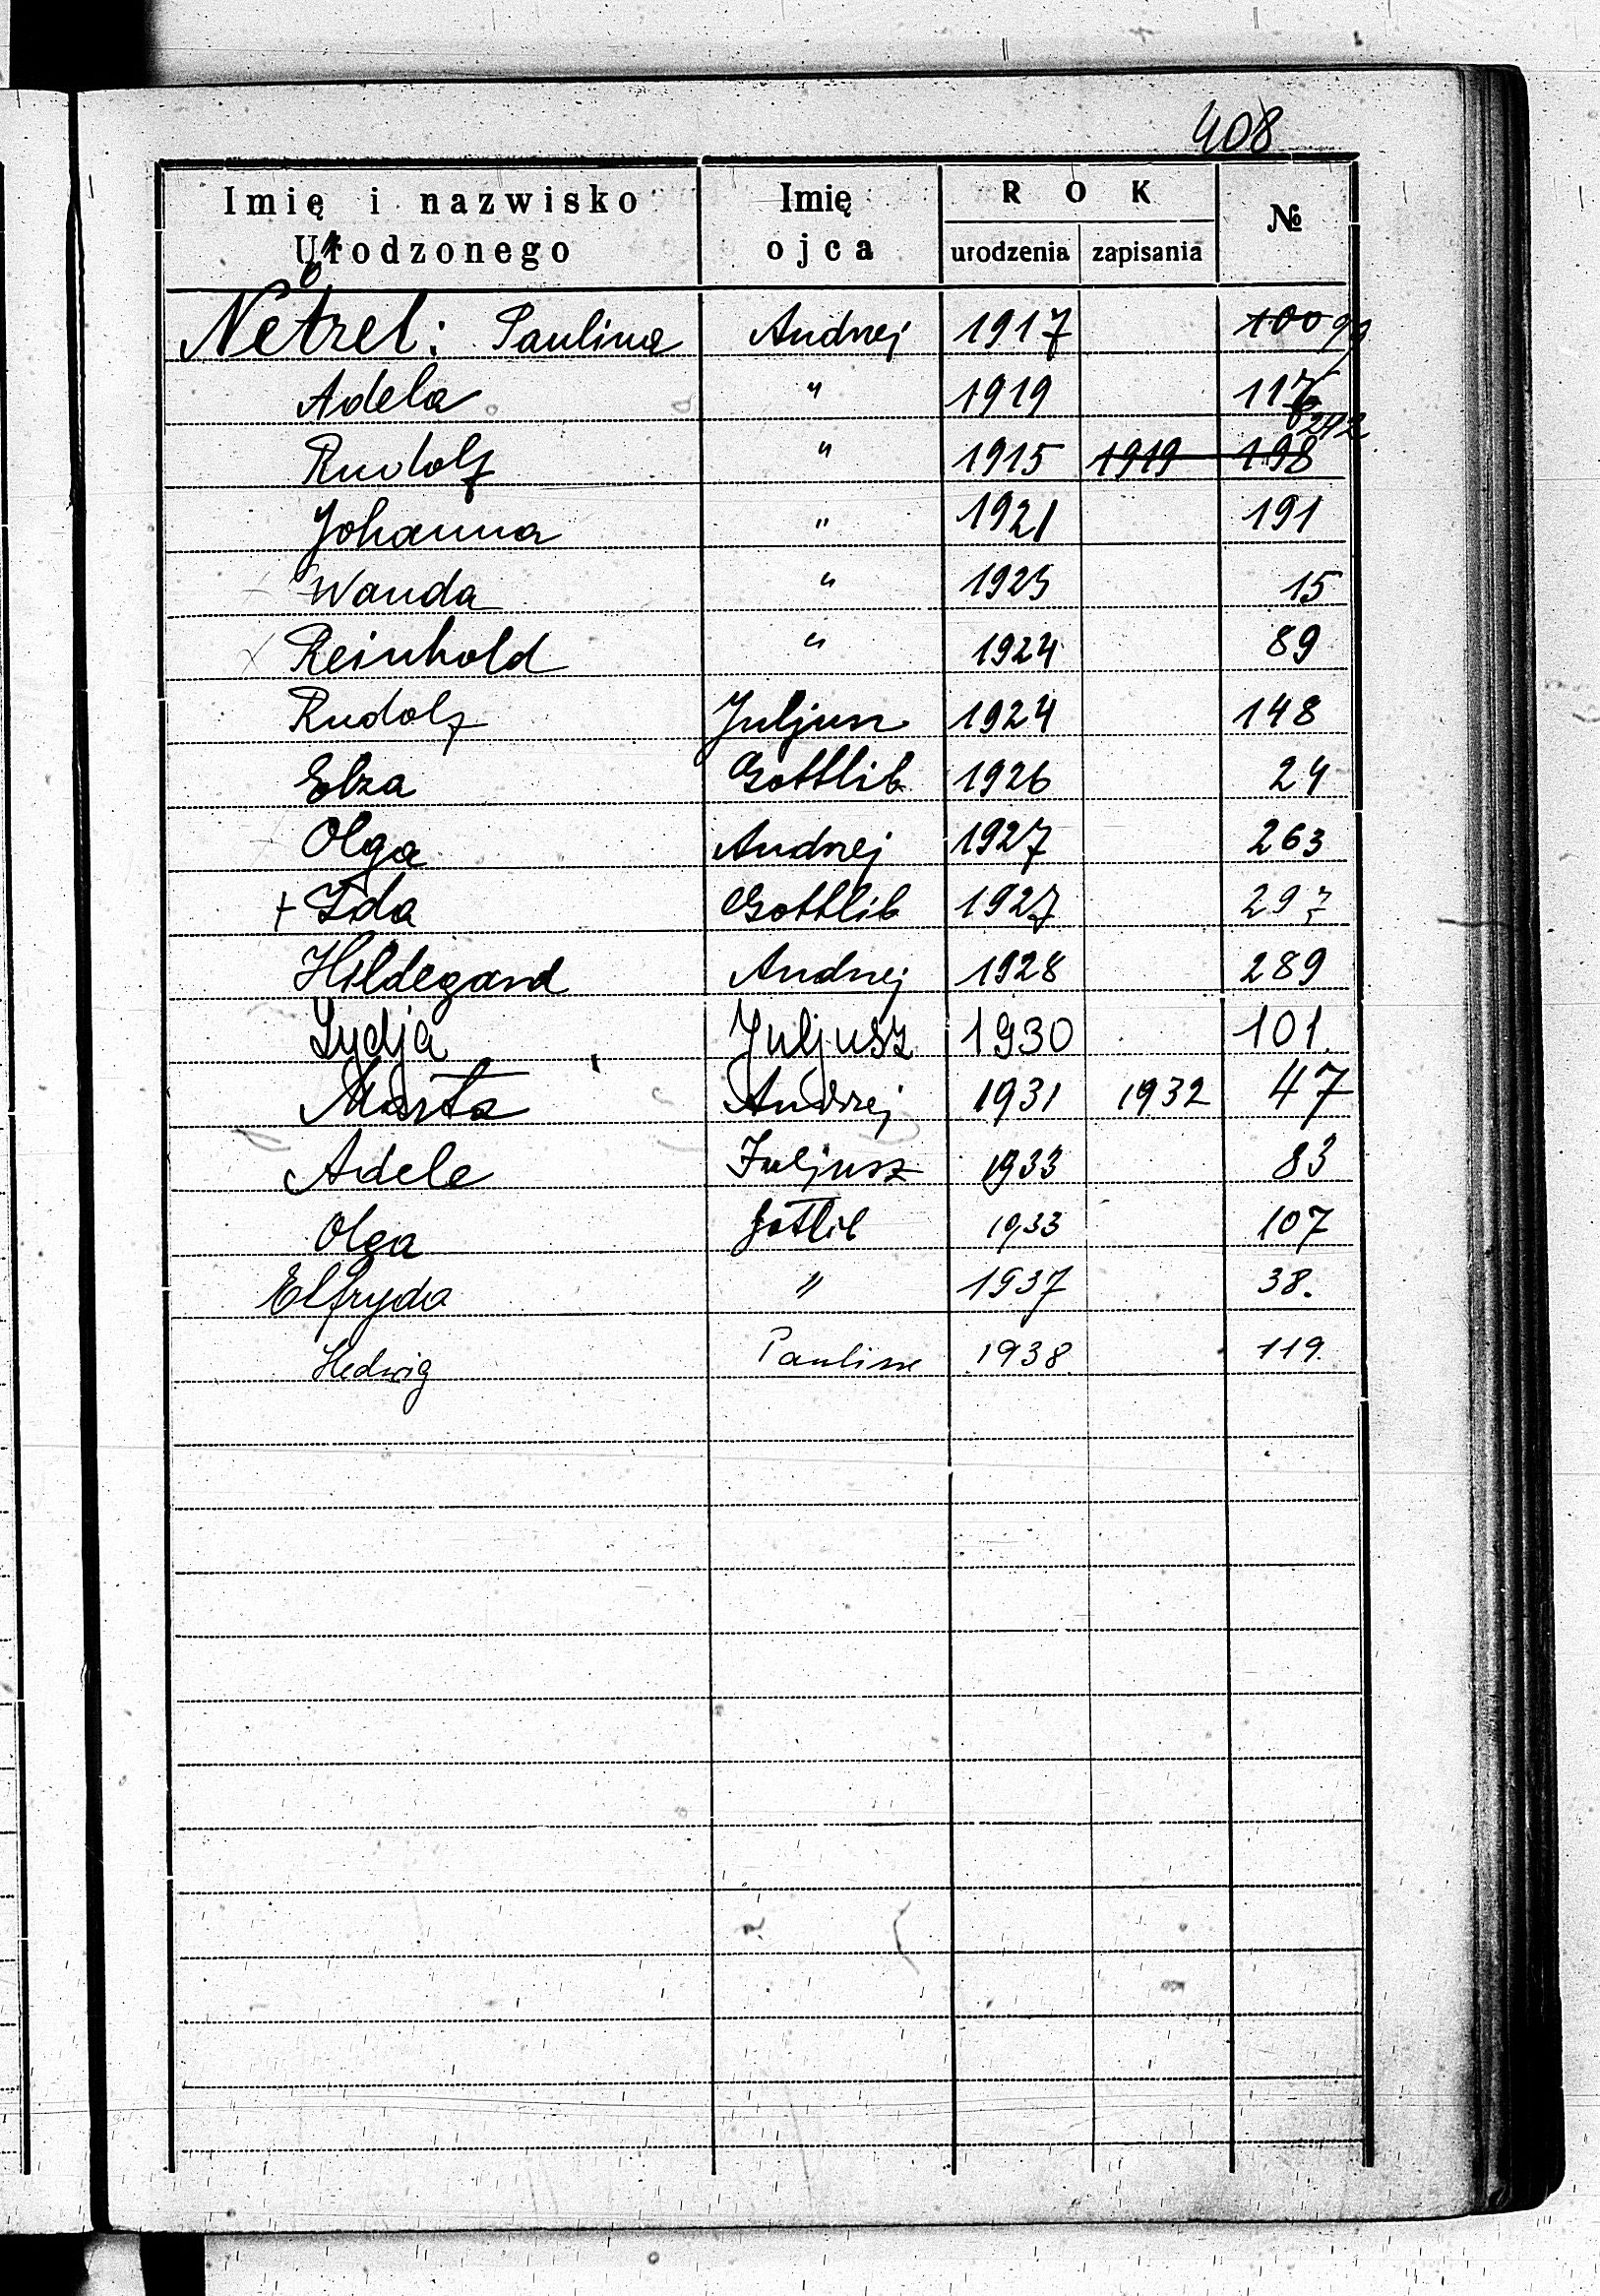 408
Imię i nazwisko Urodzonego Imię ojca ROK urodzenia zapisania №
Netzel: Paulina Andrzej 1917 100 99
Adela " 1919 117
Rudolf " 1915 1919 198 272
Johanna " 1921 191
Wanda " 1923 15
Reinhold " 1924 89
Rudolf Juljusz 1924 148
Elza Gottlib 1926 24
Olga Andrzej 1927 263
+ Ida Gottlib 1927 297
Hildegard Andrzej 1928 289
Lydja Juljusz 1930 101.
Marta Andrzej 1931 1932 47
Adele Juljusz 1933 83
Olga Gottlib 1933 107
Elfryda " 1937 38.
Hedwig Pauline 1938 119.